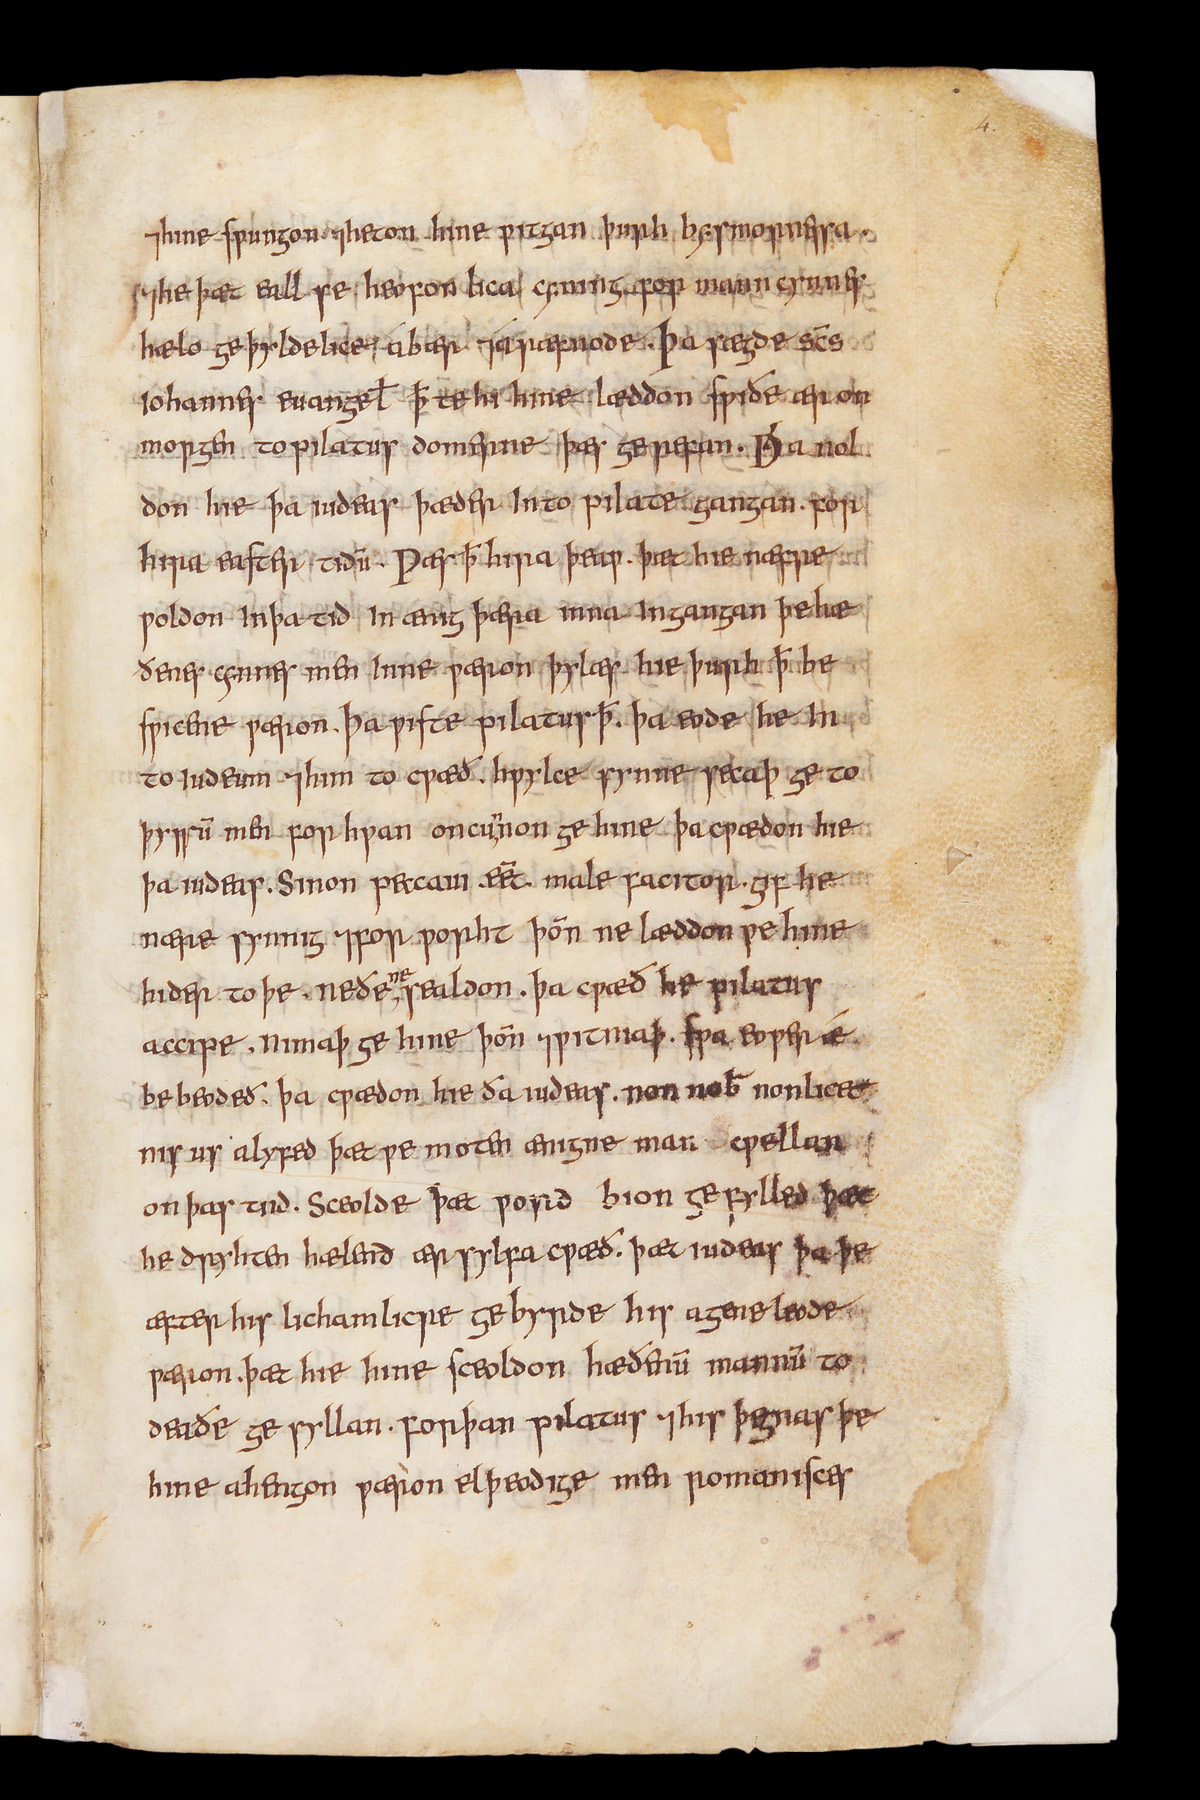 4.
⁊hine ſƿungon ⁊heton hine ƿitgan þurh bysmornesse.
⁊he þæt eall se heofon lica cyning for mann cynnes
hælo geþyldelice ábær ⁊áræfnode. Þa sægde sc̄s
Iohannes euangeł ꝥte hi hine læddon ſƿiðe ær on
morgen to pilatus domerne þæs gerefan. Þa nol
don hie þa iudeas þæder Into pilate gangan. for
hira eaſter tidū. Ƿæs ꝥ hira þeaƿ. þæt hie næfre
ƿoldon Inþa tid In ænig þæra inna Ingangan þe hæ
ðenes cynnes men Inne ƿæron þylæs hie þurh ꝥ be
ſmitene ƿæron. Þa ƿiſte pilatus ꝥ. þa eode he In
to Iudeum ⁊him to cƿæð. hƿylce synne secaþ ge to
þyssū men for hƿan oncunnon ge hine þa cƿædon hie
þa iudeas. Sinon peccaui eēt. male facitor. gif he
nære synnig ⁊forƿorht þōn ne læddon ƿe hine
hider to þe. neðe ne sealdon. þa cƿæð he pilatus
accipe. nimaþ ge hine þōn ⁊ƿitniaþ. ſƿa eoƿer ǽ
be beodeð. þa cƿædon hie ða iudeas. non nob̄ nonlicet
nis us alyfed þæt ƿe moten ænigne man cƿellan
on þas tiid. Sceolde þæt ƿord bion gefylled þæt
he dryhten hælend ær sylfa cƿæð. þæt iudeas þa þe
æfter his lichamlicre gebyrde his agene leode
ƿæron. þæt hie hine ſceoldon hæðenū mannū to
deaðe ge syllan. forþan pilatus ⁊his þegnas þe
hine ahengon ƿæron elþeodige men romaniſces